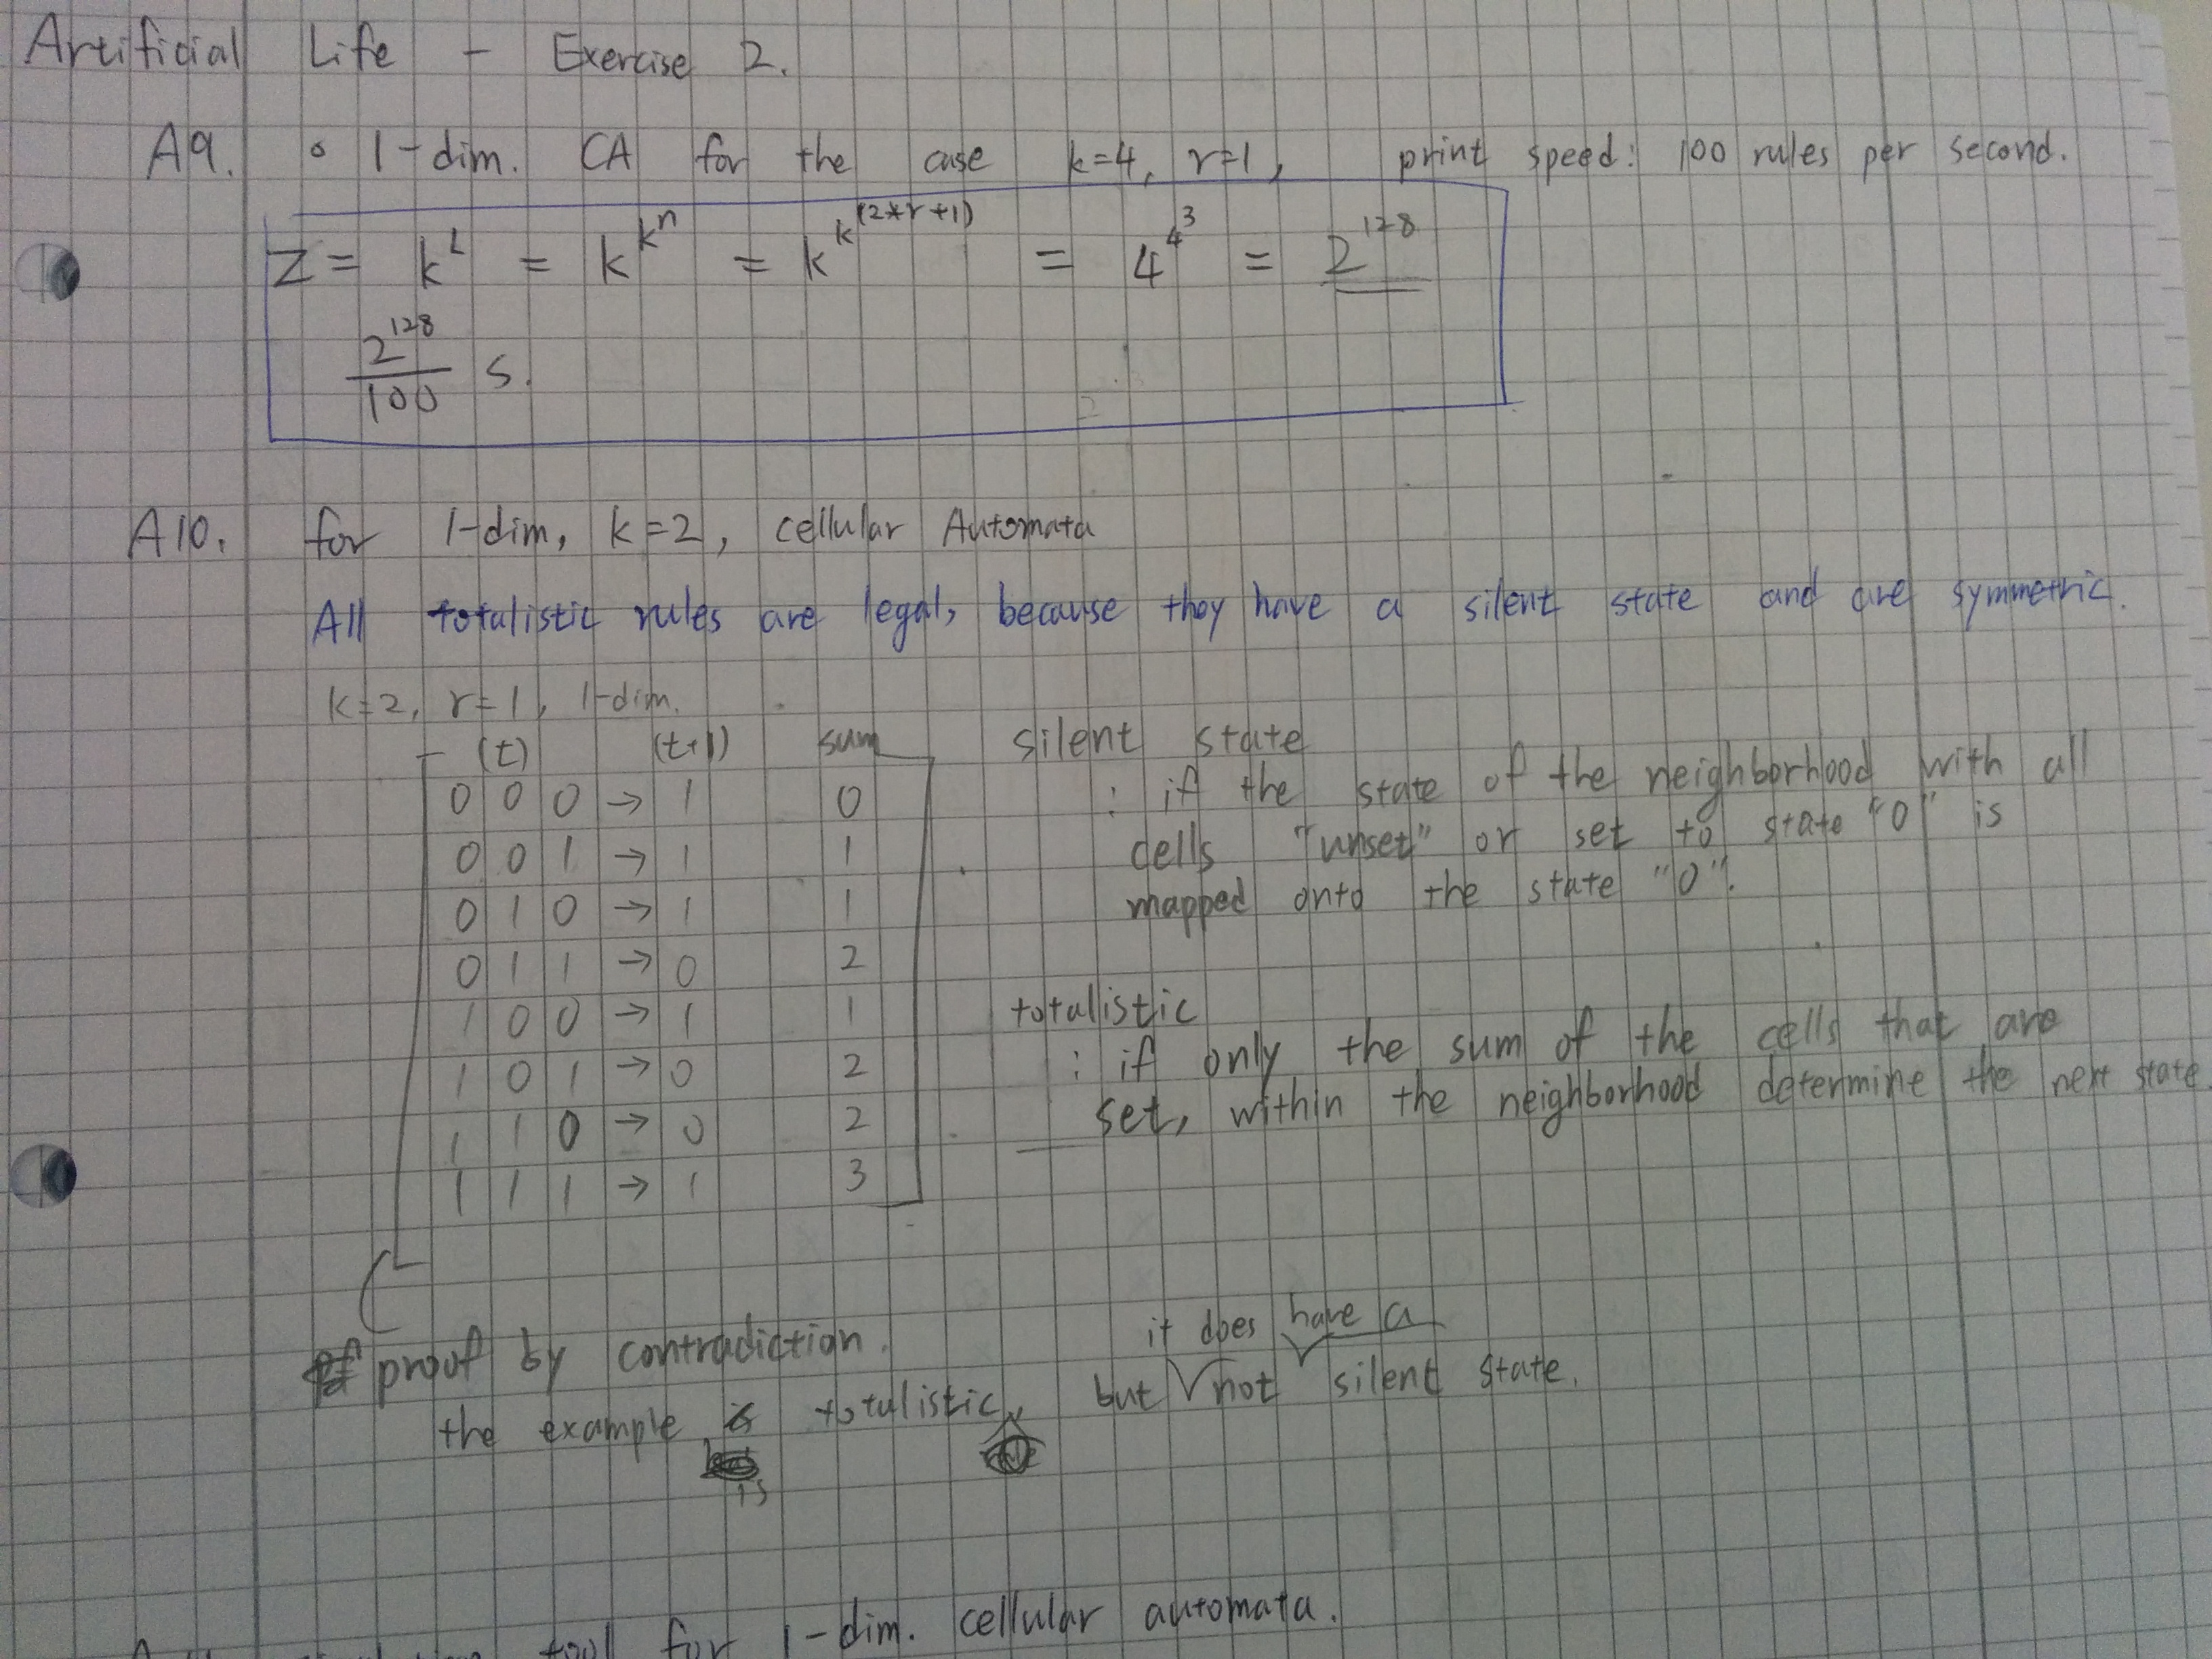 Artificial Life - Exercise 2.
A9. ∘ 1-dim. CA for the case k=4, r=1, print speed: 100 rules per second.
Z = k^L = k^k^n = k^k^(2*r+1) = 4^4^3 = 2^128
2^128/100 s.
A10. for 1-dim, k=2, cellular Automata
All totalistic rules are legal, because they have a silent state and are symmetric.
k=2, r=1, 1-dim.
(t) (t+1) sum
0 0 0 → 1 0
0 0 1 → 1 1
0 1 0 → 1 1
0 1 1 → 0 2
1 0 0 → 1 1
1 0 1 → 0 2
1 1 0 → 0 2
1 1 1 → 1 3
silent state
: if the state of the neighborhood with all
cells "unset" or set to state "0" is
mapped onto the state "0".
totalistic
: if only the sum of the cells that are
set, within the neighborhood determine the next state
proof by contradiction.
the example is totalistic, but it does not have a silent state.
tool for 1-dim. cellular automata.